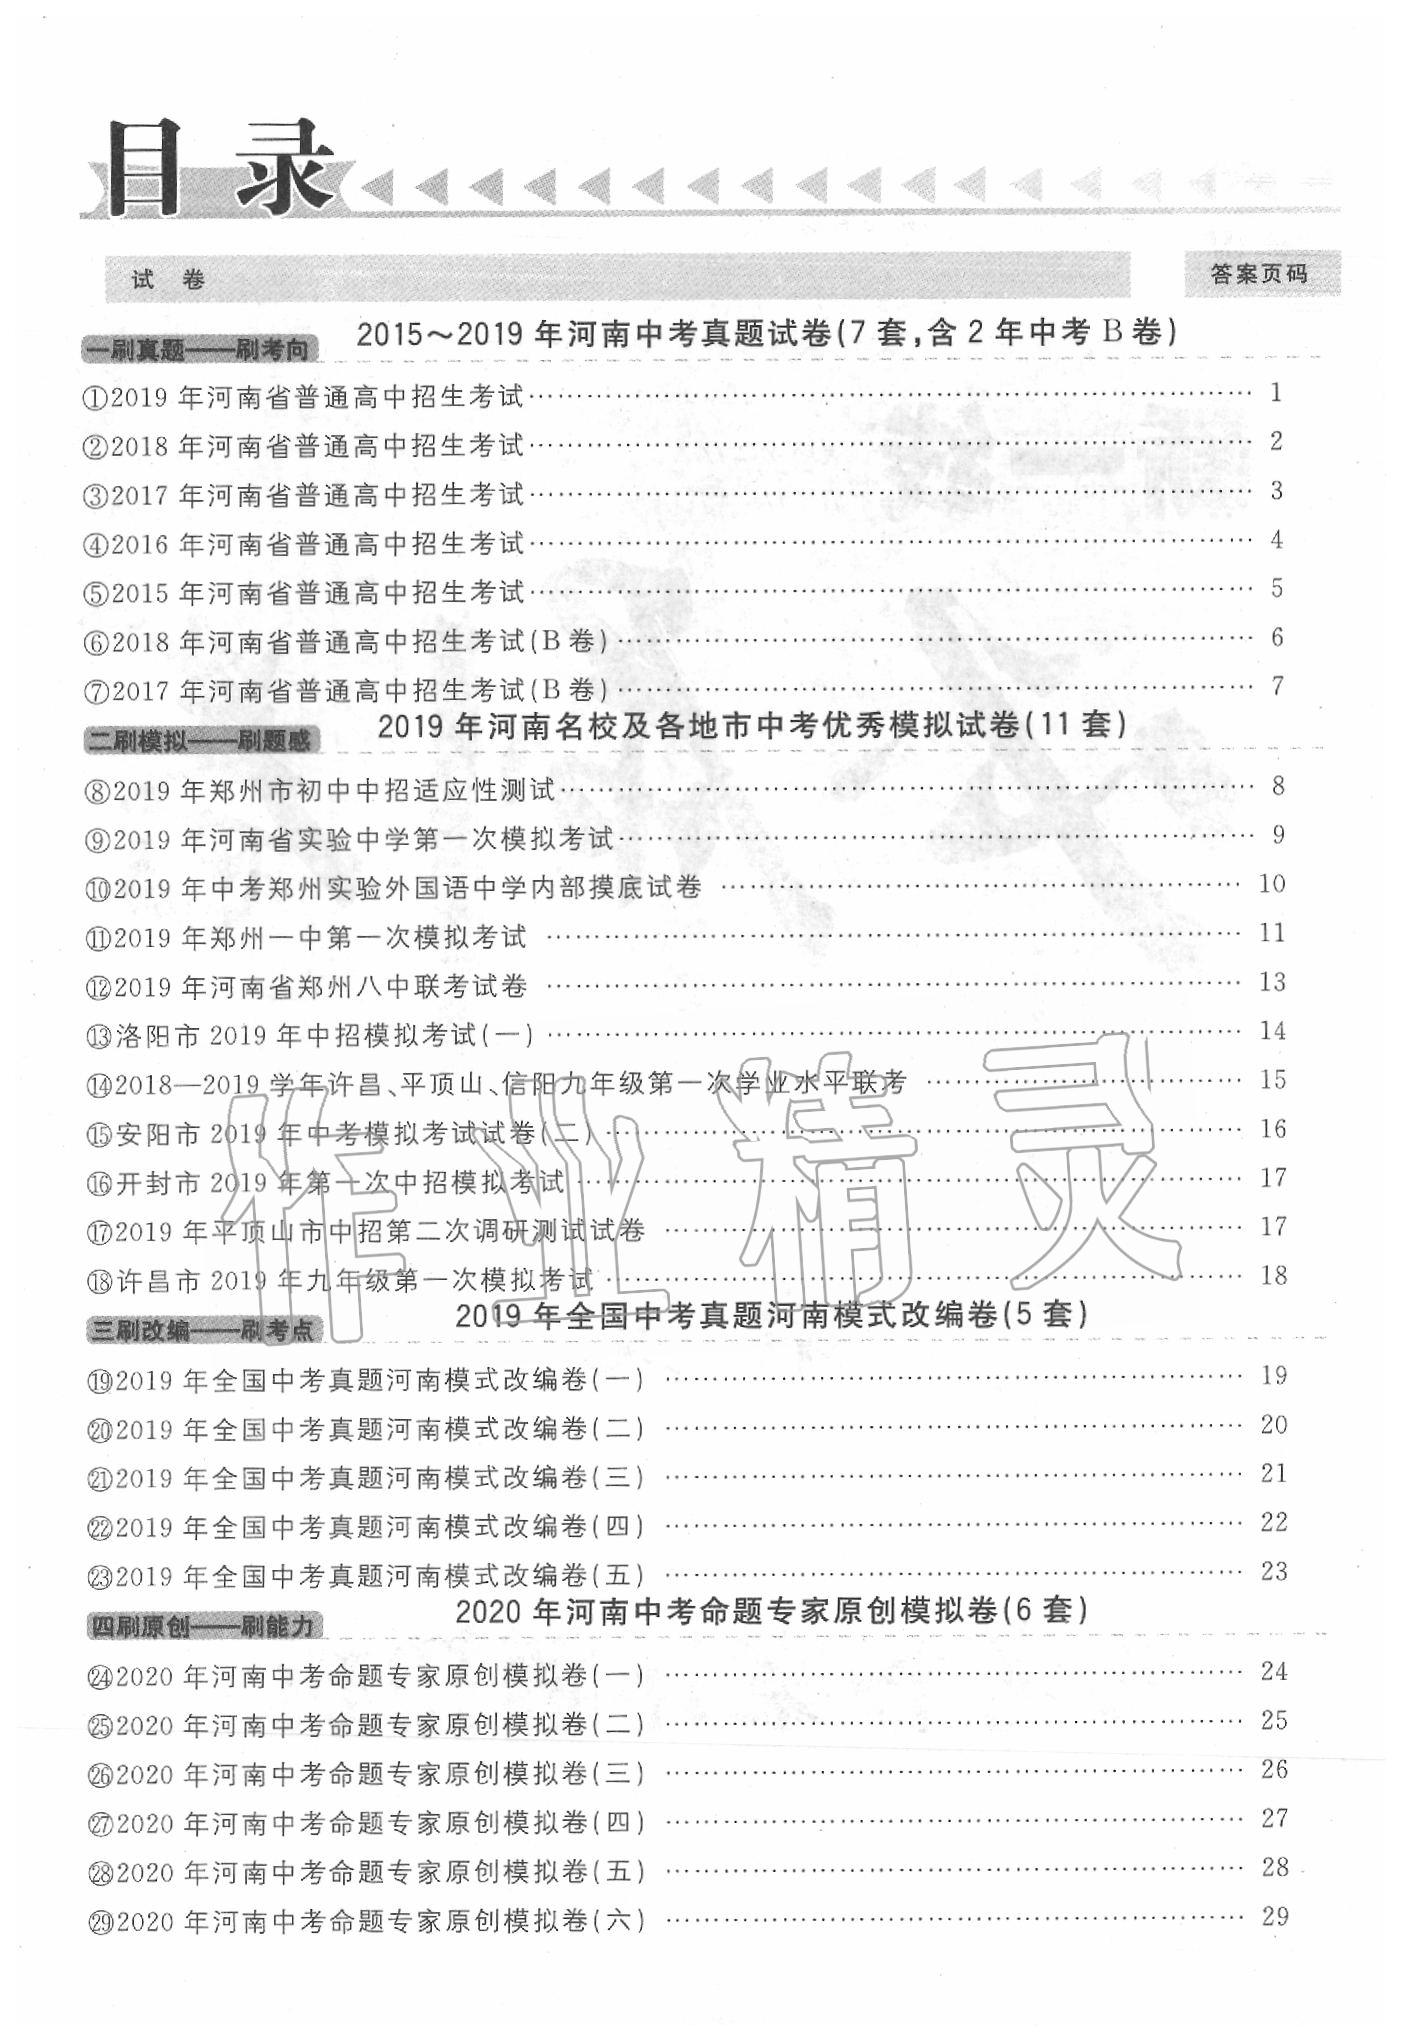 目 录
试 卷 答案页码
一刷真题——刷考向 2015～2019 年河南中考真题试卷(7 套,含 2 年中考 B 卷)
①2019 年河南省普通高中招生考试…… 1
②2018 年河南省普通高中招生考试…… 2
③2017 年河南省普通高中招生考试…… 3
④2016 年河南省普通高中招生考试…… 4
⑤2015 年河南省普通高中招生考试…… 5
⑥2018 年河南省普通高中招生考试(B 卷)…… 6
⑦2017 年河南省普通高中招生考试(B 卷)…… 7
二刷模拟——刷题感 2019 年河南名校及各地市中考优秀模拟试卷(11 套)
⑧2019 年郑州市初中中招适应性测试…… 8
⑨2019 年河南省实验中学第一次模拟考试…… 9
⑩2019 年中考郑州实验外国语中学内部摸底试卷 …… 10
⑪2019 年郑州一中第一次模拟考试 …… 11
⑫2019 年河南省郑州八中联考试卷 …… 13
⑬洛阳市 2019 年中招模拟考试(一) …… 14
⑭2018—2019 学年许昌、平顶山、信阳九年级第一次学业水平联考 …… 15
⑮安阳市 2019 年中考模拟考试试卷(二) …… 16
⑯开封市 2019 年第一次中招模拟考试 …… 17
⑰2019 年平顶山市中招第二次调研测试试卷 …… 17
⑱许昌市 2019 年九年级第一次模拟考试 …… 18
三刷改编——刷考点 2019 年全国中考真题河南模式改编卷(5 套)
⑲2019 年全国中考真题河南模式改编卷(一) …… 19
⑳2019 年全国中考真题河南模式改编卷(二) …… 20
㉑2019 年全国中考真题河南模式改编卷(三) …… 21
㉒2019 年全国中考真题河南模式改编卷(四) …… 22
㉓2019 年全国中考真题河南模式改编卷(五) …… 23
四刷原创——刷能力 2020 年河南中考命题专家原创模拟卷(6 套)
㉔2020 年河南中考命题专家原创模拟卷(一) …… 24
㉕2020 年河南中考命题专家原创模拟卷(二) …… 25
㉖2020 年河南中考命题专家原创模拟卷(三) …… 26
㉗2020 年河南中考命题专家原创模拟卷(四) …… 27
㉘2020 年河南中考命题专家原创模拟卷(五) …… 28
㉙2020 年河南中考命题专家原创模拟卷(六) …… 29
作业精灵